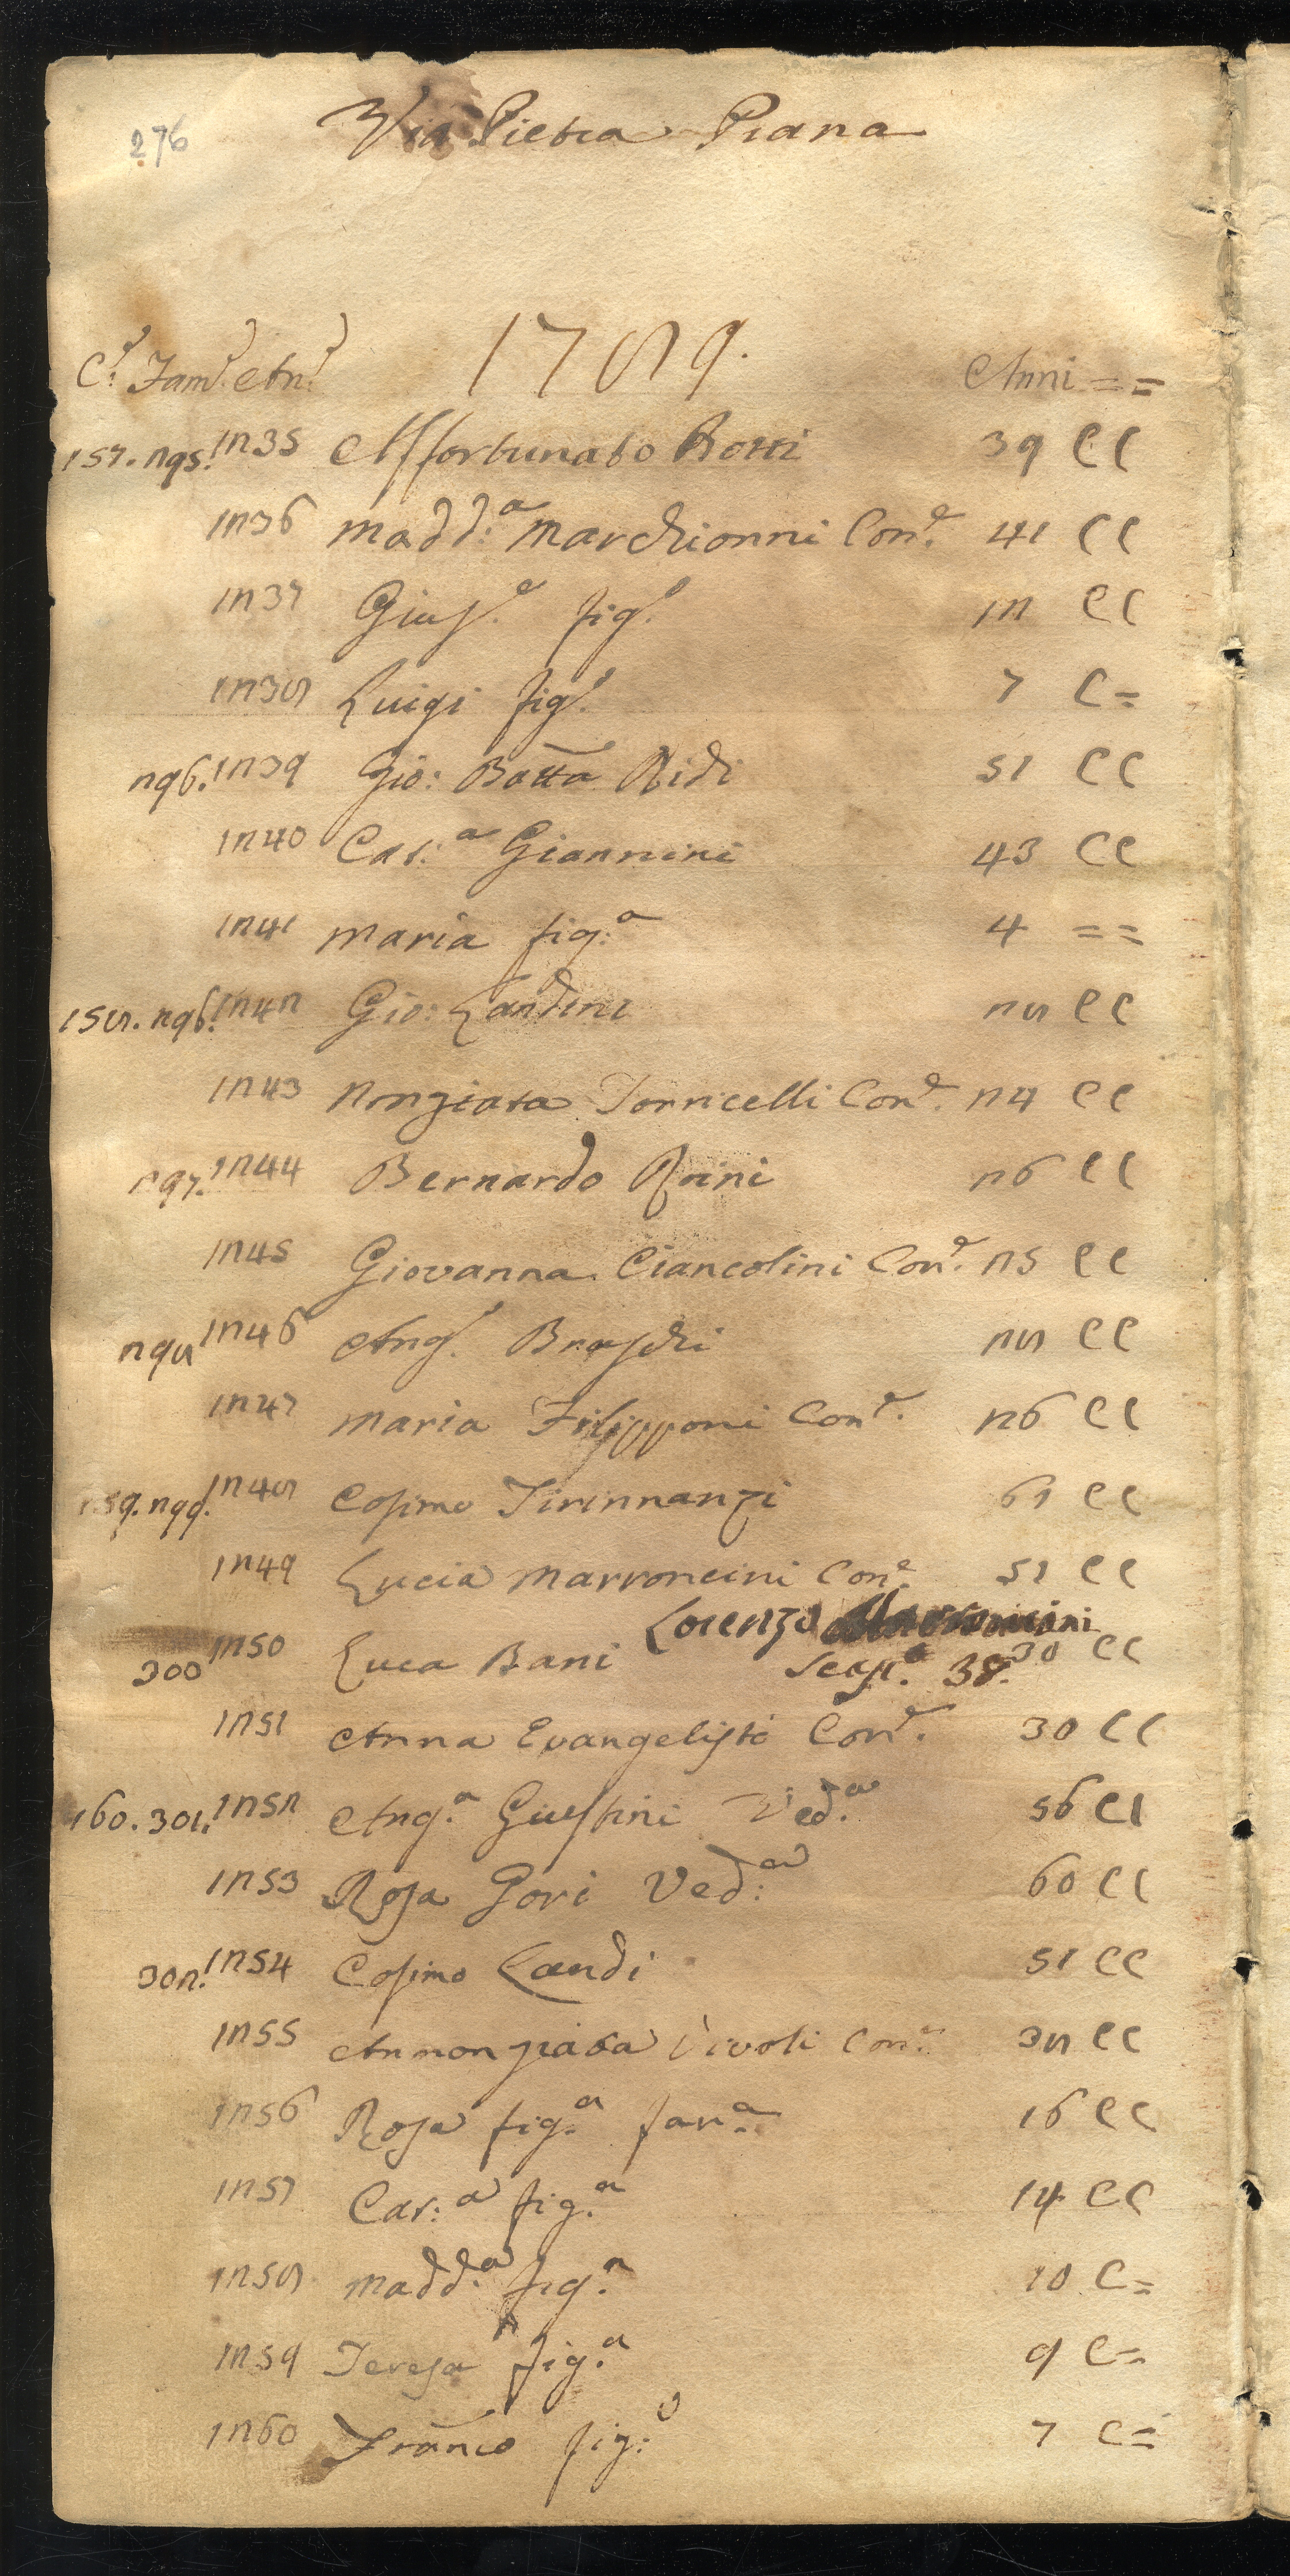 276
Via Pietra Piana
1789.
C.i Fam.e An.e Anni ==
157. 295. 1235 Affortunato 39 CC
1236 Madd:a Marchionni Con.e 41 CC
1237 Gius.e fig.o 12 CC
1238 Luigi fig.o 7 C=
296. 1239 Gio: Batta Ridi 51 CC
1240 Cat:a Giannini 43 CC
1241 Maria fig:a 4 ==
158. 296. 1242 Gio: Landini 28 CC
1243 Nonziata Torricelli Con.e 24 CC
297. 1244 Bernardo 26 CC
1245 Giovanna Ciancolini Con.e 25 CC
298 1246 Ang.o Braschi 28 CC
1247 Maria Filipponi Con.e 26 CC
159. 299. 1248 Cosimo Tirinnanzi 61 CC
1249 Lucia Marroncini Con.e 51 CC
Lorenzo Marroncini
300 1250 Luca Bani 30 CC
Scap.o 38.
1251 Anna Evangelisti Con.e 30 CC
160. 301. 1252 Ang.a Giustini Ved.a 56 CC
1253 Rosa Gori Ved:a 60 CC
302. 1254 Cosimo Landi 51 CC
1255 Annonziata Tivoli Con.e 38 CC
1256 Rosa fig.a fan.a 16 CC
1257 Cat:a fig.a 14 CC
1258 Madd:a fig.a 10 C=
1259 Teresa fig.a 9 C=
1260 Franco fig:o 7 C=